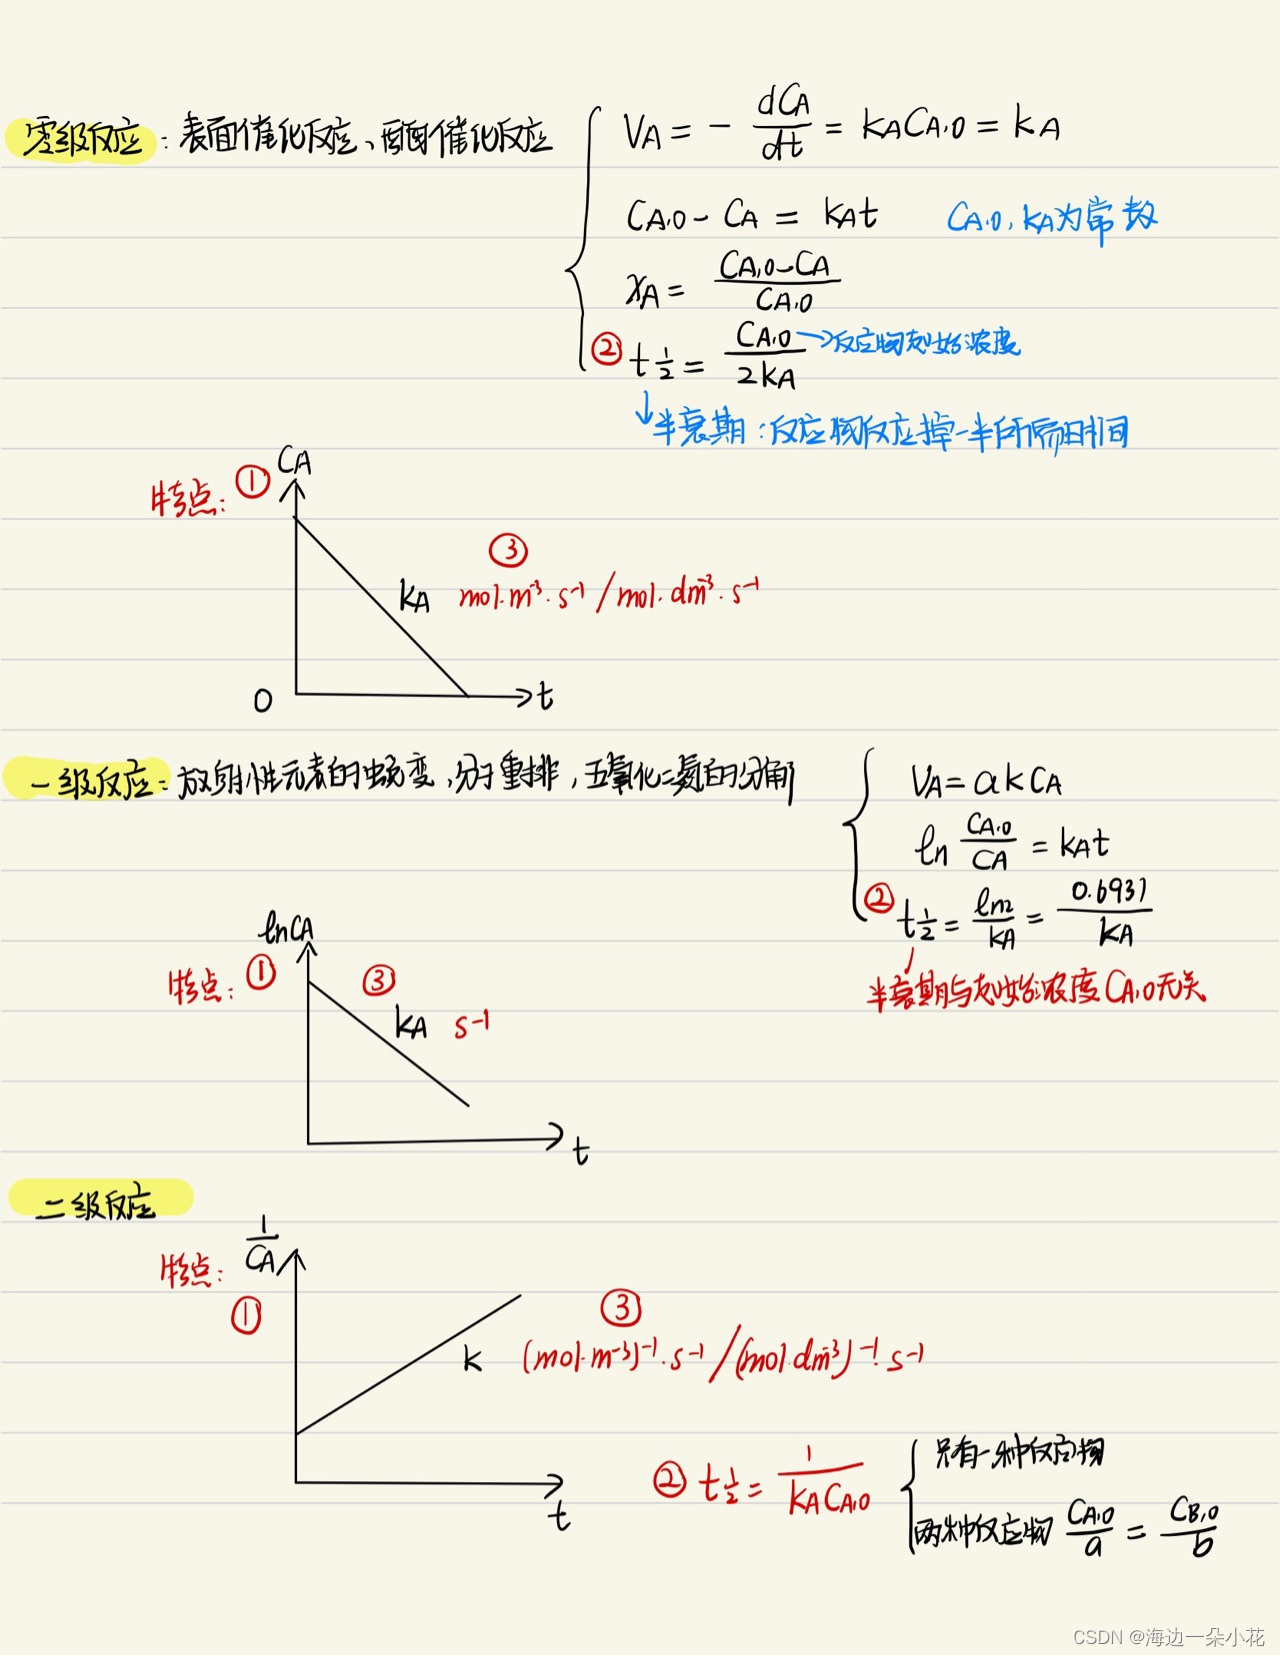 零级反应：表面催化反应、酶催化反应
V_A = - dC_A/dt = k_A C_A,0 = k_A
C_A,0 - C_A = k_A t　C_A,0, k_A为常数
x_A = (C_A,0 - C_A)/C_A,0
② t 1/2 = C_A,0/2k_A →反应物起始浓度
↓半衰期：反应物反应掉一半所需时间
特点：① C_A
③
k_A mol·m⁻³·s⁻¹/mol·dm⁻³·s⁻¹
0 t
一级反应：放射性元素的蜕变,分子重排,五氧化二氮的分解
V_A = a k C_A
ln C_A,0/C_A = k_A t
② t 1/2 = ln2/k_A = 0.6931/k_A
半衰期与起始浓度C_A,0无关
lnC_A
特点：① ③
k_A s⁻¹
t
二级反应
1/C_A
特点：
① ③
k (mol·m⁻³)⁻¹·s⁻¹/(mol·dm⁻³)⁻¹·s⁻¹
t
② t 1/2 = 1/k_A C_A,0
只有一种反应物
两种反应物 C_A,0/a = C_B,0/b
CSDN @海边一朵小花